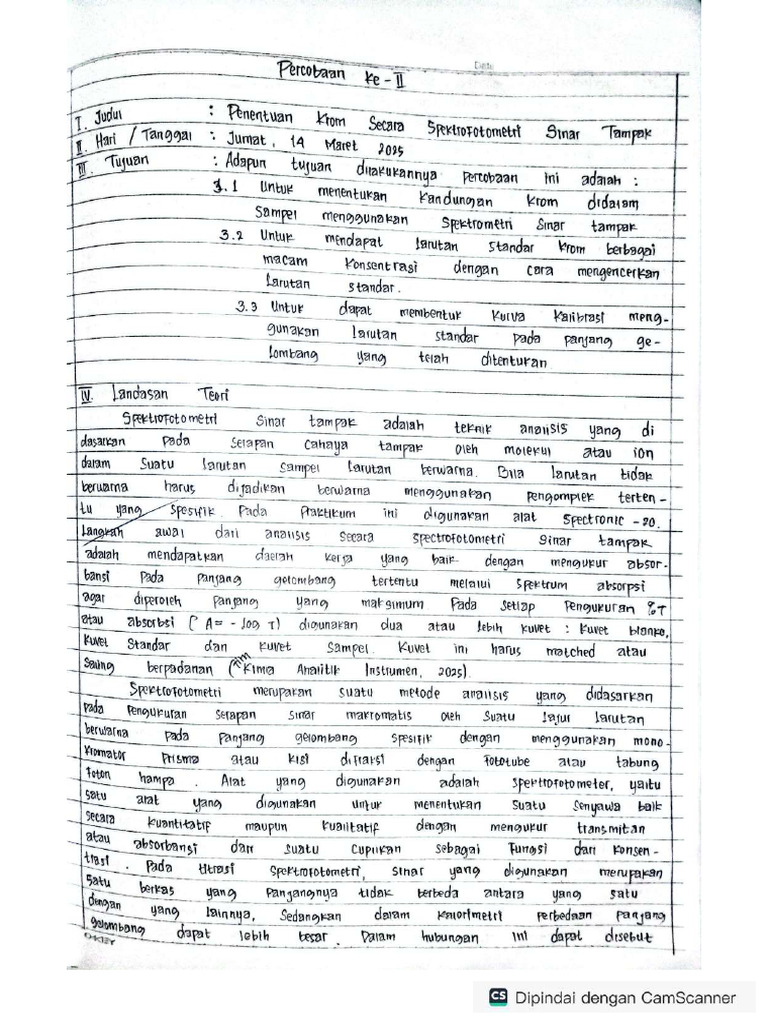 Date
Percobaan Ke - II
I. Judul : Penentuan Krom Secara Spektrofotometri Sinar Tampak
II. Hari / Tanggal : Jumat, 14 Maret 2025
III. Tujuan : Adapun tujuan dilakukannya percobaan ini adalah :
3.1 Untuk menentukan kandungan krom didalam
Sampel menggunakan Spektrometri Sinar tampak
3.2 Untuk mendapat larutan standar krom berbagai
macam konsentrasi dengan cara mengencerkan
larutan standar.
3.3 Untuk dapat membentuk kurva kalibrasi meng-
gunakan larutan standar pada panjang ge-
lombang yang telah ditentukan
IV. Landasan Teori
Spektrofotometri Sinar tampak adalah teknik analisis yang di
dasarkan pada serapan cahaya tampak oleh molekul atau ion
dalam suatu larutan sampel larutan berwarna. Bila larutan tidak
berwarna harus dijadikan berwarna menggunakan pengomplek terten-
tu yang spesifik. Pada praktikum ini digunakan alat Spectronic -20.
Langkah awal dari analisis secara spectrofotometri Sinar tampak
adalah mendapatkan daerah kerja yang baik dengan mengukur absor-
bansi pada panjang golombang tertentu melalui spektrum absorpsi
agar diperoleh panjang yang maksimum Pada setiap Pengukuran %T
atau absorbsi (A = - log T) digunakan dua atau lebih kuvet : Kuvet blanko,
Kuvet Standar dan kuvet Sampel. Kuvet ini harus matched atau
Saling berpadanan (Tim Kimia Analitik Instrumen, 2025).
Spektrofotometri merupakan suatu metode analisis yang didasarkan
pada pengukuran serapan sinar makromatis oleh suatu lajur larutan
berwarna pada panjang gelombang spesifik dengan menggunakan mono-
kromator prisma atau kisi difraksi dengan fototube atau tabung
foton hampa. Alat yang digunakan adalah spektrofotometer, yaitu
satu alat yang digunakan untuk menentukan suatu senyawa baik
secara kuantitatif maupun kualitatif dengan mengukur transmitan
atau absorbansi dari suatu cuplikan sebagai fungsi dari konsen-
trasi. Pada titrasi spektrofotometri, sinar yang digunakan merupakan
satu berkas yang panjangnya tidak berbeda antara yang satu
dengan yang lainnya, Sedangkan dalam kalorimetri perbedaan panjang
gelombang dapat lebih besar. Dalam hubungan ini dapat disebut
OKEY
CS Dipindai dengan CamScanner